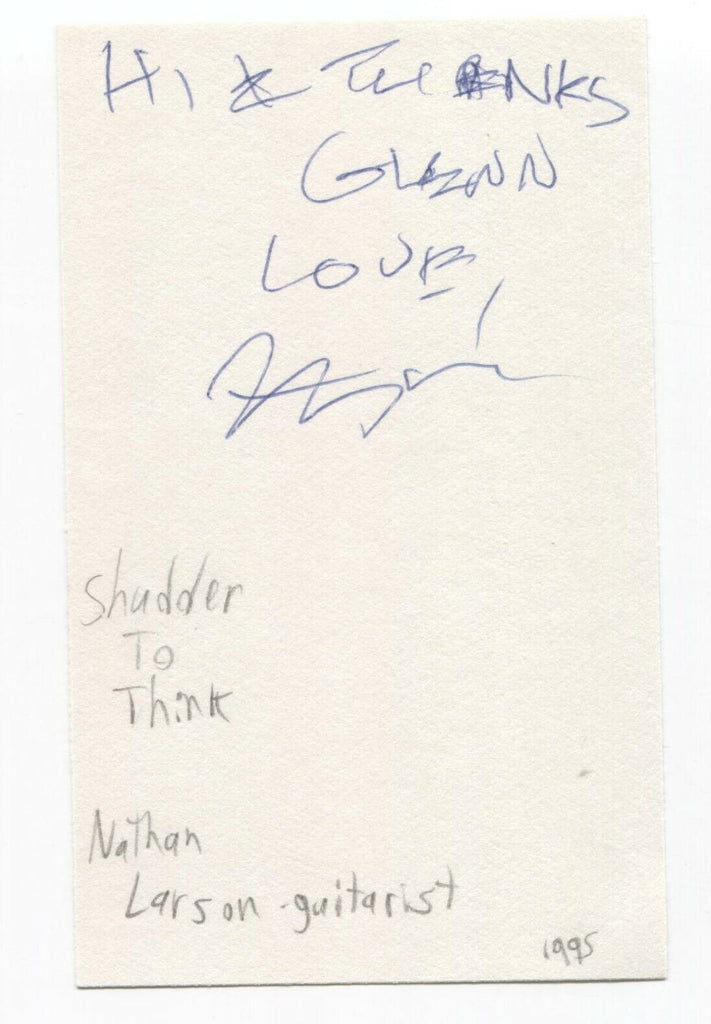 HI & THANKS
GLENN
LOVE,
Shudder
To
Think
Nathan
Larson-guitarist
1995